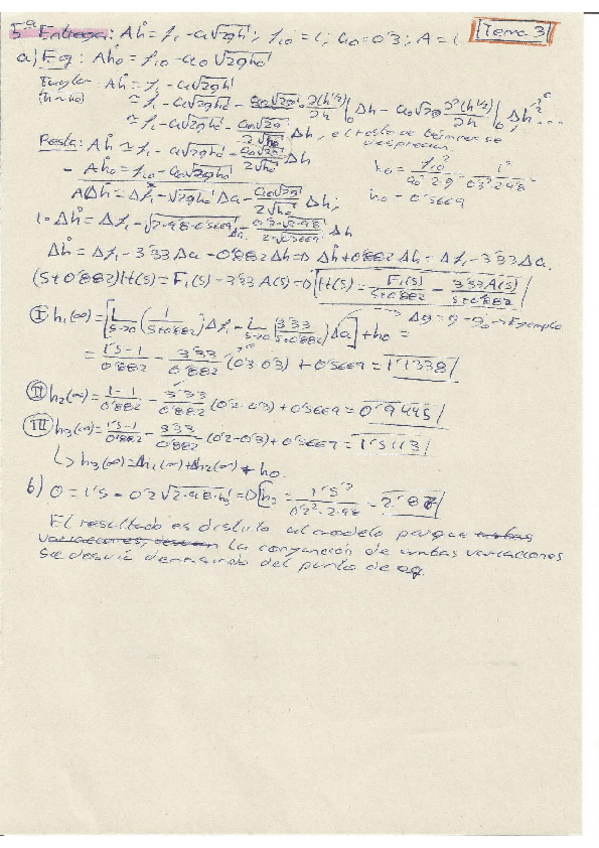 5ª Entrega: Aḣ = f₁ - a√2gh ; f₁₀ = 1 ; a₀ = 0'3 ; A = 1 Tema 3
a) Eq : Aḣ₀ = f₁₀ - a₀√2gh₀
Aḣ = f₁ - a√2gh
Δh, el resto de términos se
desprecian.
Resta: Aḣ ≃ f₁ - a√2gh₀ - a₀√2g / 2√h₀ Δh
- Aḣ₀ = f₁₀ - a₀√2gh₀
h₀ = f₁₀² / a₀²·2·g = 1² / 0'3²·2·9'8 =
h₀ = 0'5669
AΔḣ = Δf₁ - √2gh₀ Δa - a₀√2g / 2√h₀ Δh;
1·Δḣ = Δf₁ - √2·9'8·0'5669 Δa - 0'3·√2·9'8 / 2·√0'5669 Δh
Δḣ = Δf₁ - 3'33Δa - 0'882Δh => Δḣ + 0'882Δh = Δf₁ - 3'33Δa.
(s+0'882)H(s) = F₁(s) - 3'33A(s) => H(s) = F₁(s) / s+0'882 - 3'33A(s) / s+0'882
I h₁(∞) = [L s→0 (1 / s+0'882) Δf₁ - L s→0 (3'33 / s+0'882) Δa] + h₀ = Ejemplo
= 1'5-1 / 0'882 - 3'33 / 0'882 (0'3-0'3) + 0'5669 = 1'1338
II h₂(∞) = 1-1 / 0'882 - 3'33 / 0'882 (0'2-0'3) + 0'5669 = 0'9445
III h₃(∞) = 1'5-1 / 0'882 - 3'33 / 0'882 (0'2-0'3) + 0'5669 = 1'5113
↳ h₃(∞) = Δh₁(∞) + Δh₂(∞) + h₀.
b) 0 = 1'5 - 0'2√2·9'8·h₃ => h₃ = 1'5² / 0'2²·2·9'8 =
El resultado es distinto al modelo porque ambas
variaciones, la conjunción de ambas variaciones
se desvía demasiado del punto de eq.